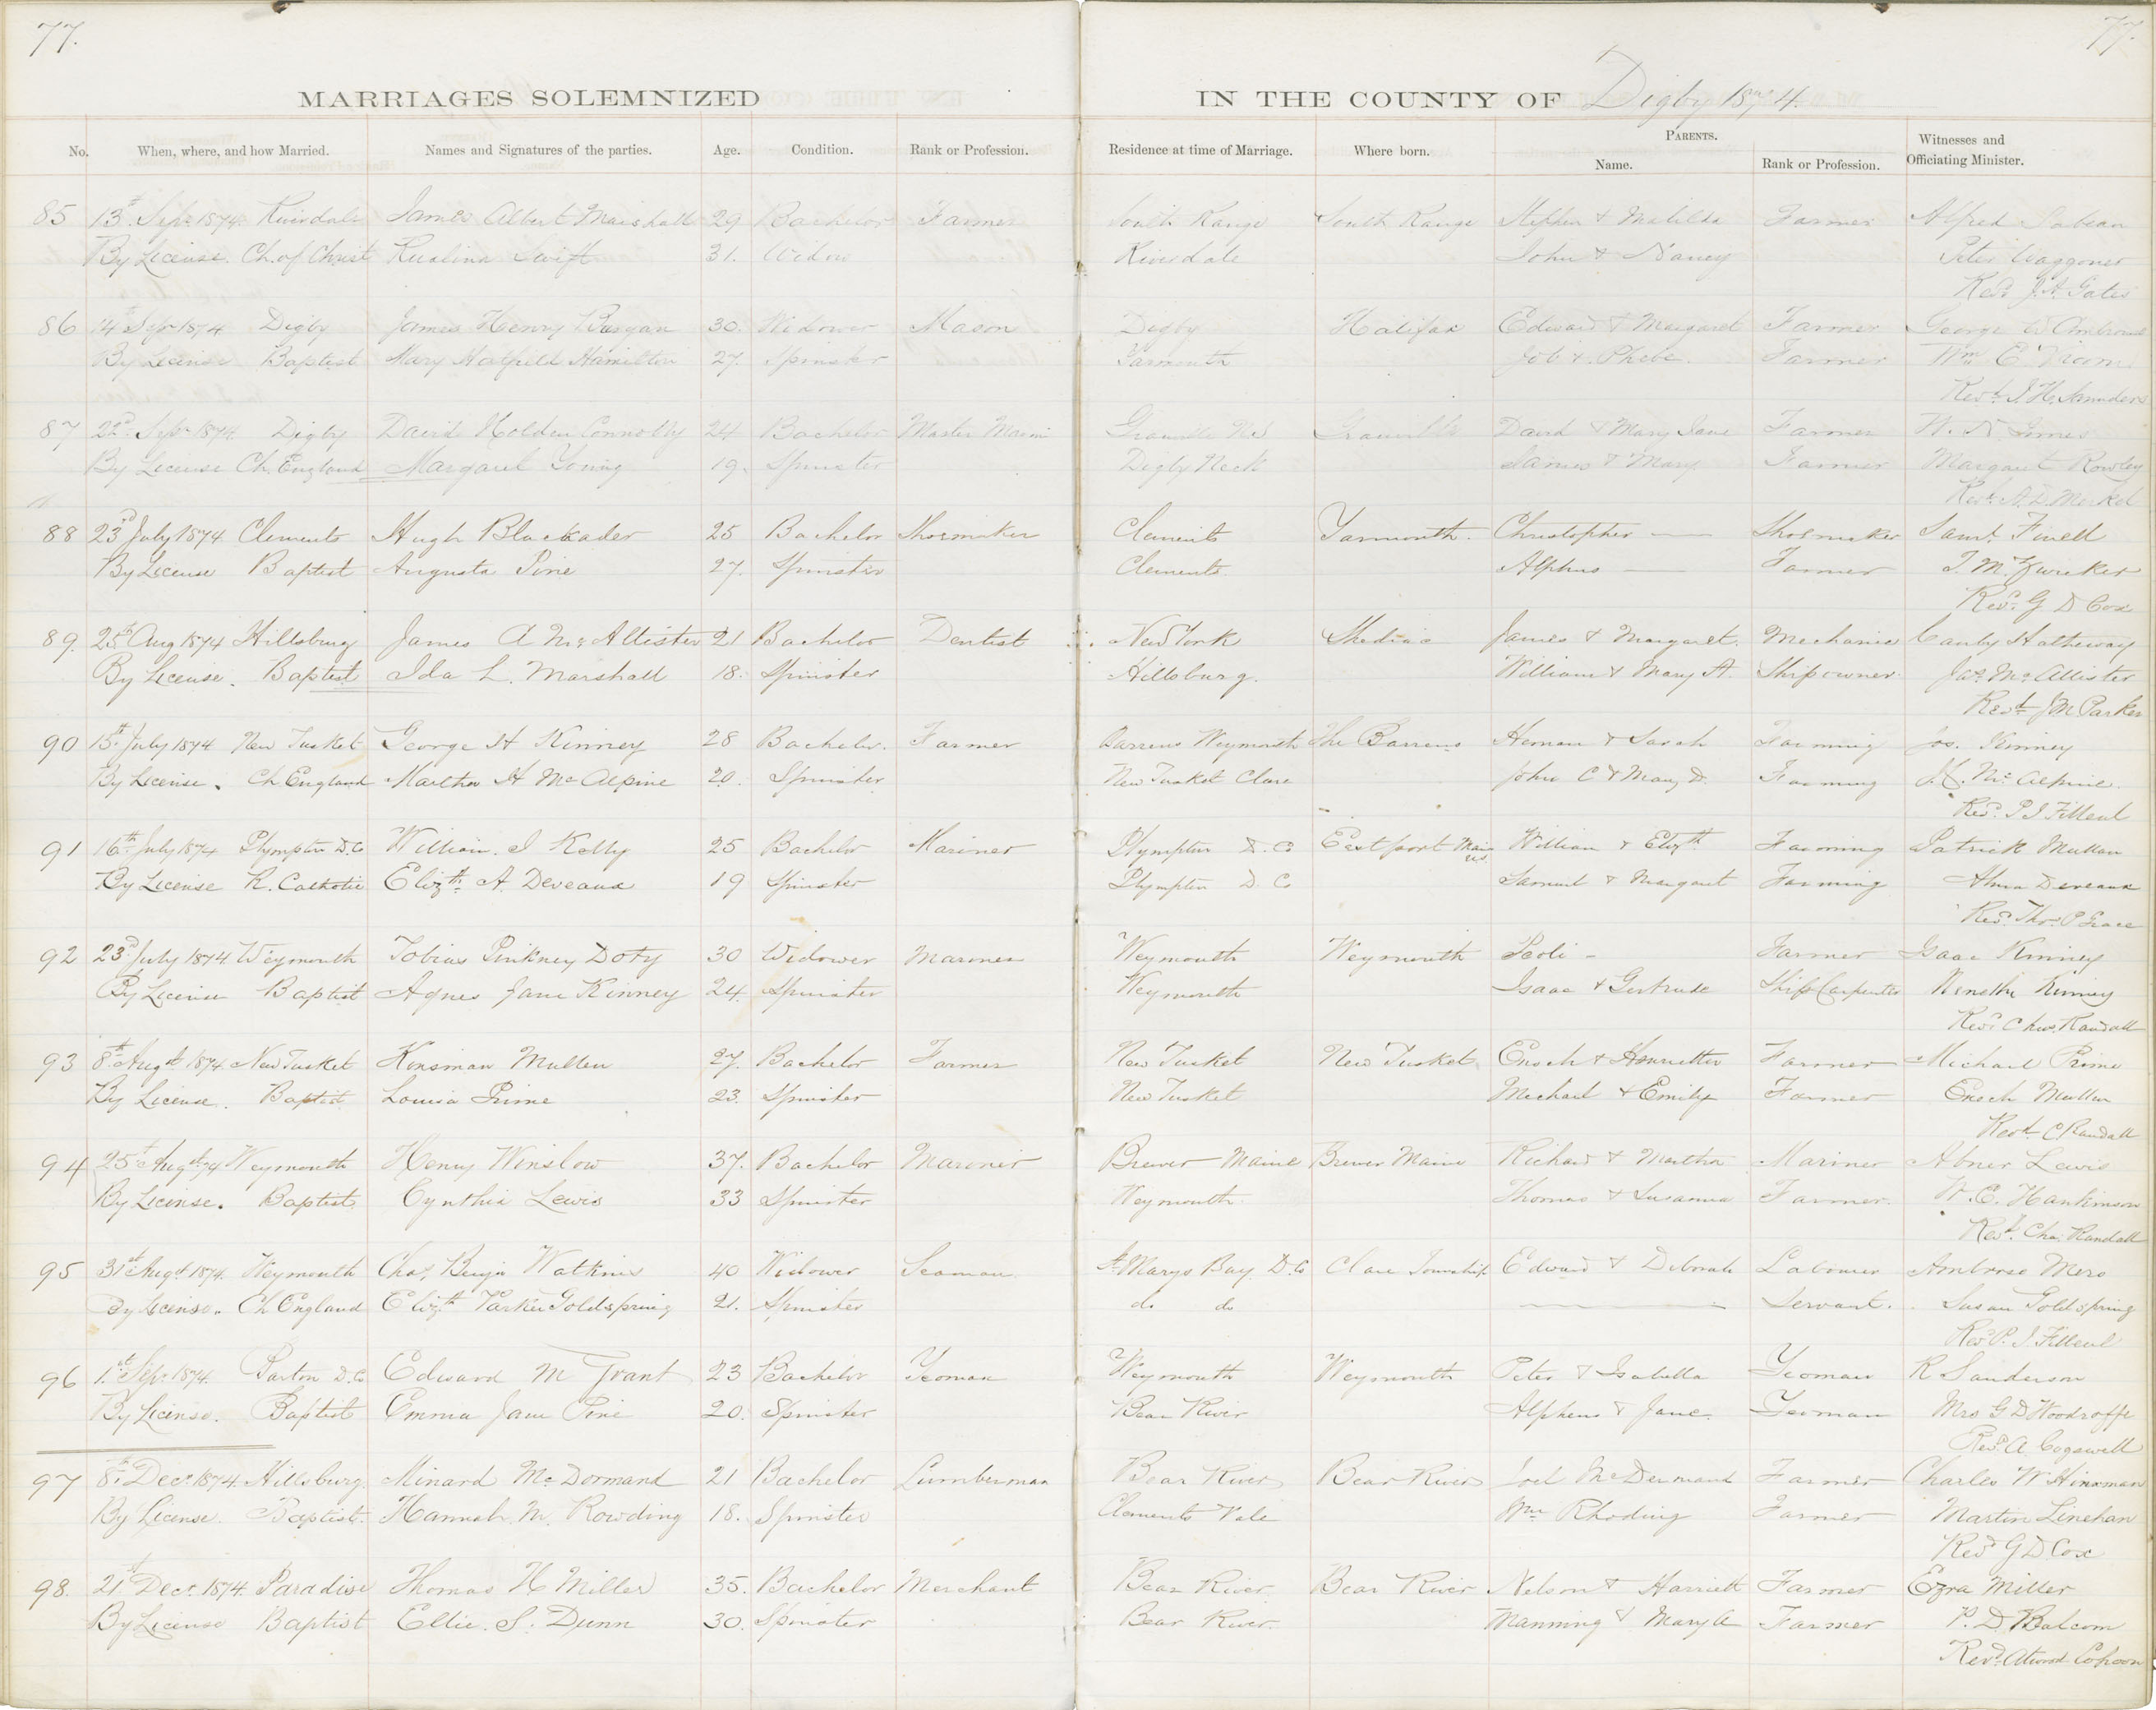 77.
77.
MARRIAGES SOLEMNIZED IN THE COUNTY OF Digby 1874.
No. When, where, and how Married. Names and Signatures of the parties. Age. Condition. Rank or Profession. Residence at time of Marriage. Where born. PARENTS. Name. Rank or Profession. Witnesses and Officiating Minister.
85 13th Sepr 1874. Riverdale James Albert Marshall 29 Bachelor Farmer South Range South Range Stephen & Matilda Farmer Alfred Sabean
By License. Ch. of Christ Swift 31. Widow Riverdale John & Nancy Peter Waggoner
Revd J. A. Gates
86 14th Sepr 1874 Digby James Henry 30. Widower Mason Digby Halifax Edward & Margaret Farmer George W
By License Baptist Mary Hatfield Hamilton 27. Spinster Yarmouth Job & Phebe. Farmer Wm E. Vroom
Revd J. H. Saunders
87 22d Sepr 1874. Digby David Holden Connolly 24 Bachelor Master Granville David & Mary Jane Farmer W. N.
By License Ch. England Margaret Young 19. Spinster Digby Neck James & Mary. Farmer Margaret Rowley
Revd
88 23d July 1874 Clements Hugh Blackader 25 Bachelor Shoemaker Clements Yarmouth. Christopher — Shoemaker Saml
By License Baptist Augusta Pine 27. Spinster Clements. Alpheus — Farmer
Revd G D Cox
89. 25th Aug 1874 Hillsburg James A McAllister 21 Bachelor Dentist New York Shediac James & Margaret. Mechanic Hatheway
By License. Baptist Ida L. Marshall 18. Spinster Hillsburg. William & Mary A. Ship owner Jas McAllister
Revd J M Parker
90 15th July 1874 New Tusket George H Kinney 28 Bachelor. Farmer Barrens Weymouth The Barrens Heman & Sarah Farming Jos. Kinney
By License. Ch England Martha H McAlpine 20. Spinster New Tusket Clare John C & Mary D. Farming McAlpine.
Revd P J Filleul
91 16th July 1874 Plympton D. Co William. J Kelly 25 Bachelor Mariner Plympton D. Co Eastport Maine U.S. William & Elizth Farming Patrick Mullan
By License R. Catholic Elizth A. Deveaux 19 Spinster Plympton D. Co Samuel & Margaret Farming Deveaux
Revd Thos P Grace
92 23d July 1874 Weymouth Tobias Pinkney Doty 30 Widower Mariner Weymouth Weymouth Paoli - Farmer Isaac Kinney
By License Baptist Agnes Jane Kinney 24. Spinster Weymouth Isaac & Gertrude Ship Carpenter Kinney
Revd Chas. Randall
93 8th Augst 1874. New Tusket Kinsman Mullen 27. Bachelor Farmer New Tusket New Tusket. Enoch & Henrietta Farmer Michael Prime
By License. Baptist Louisa Prime 23. Spinster New Tusket Michael & Emily Farmer Enoch Mullen
Revd C Randall
94 25th Augst 74 Weymouth Henry Winslow 37. Bachelor Mariner Brewer Maine Brewer Maine Richard & Martha Mariner Abner Lewis
By License. Baptist. Cynthia Lewis 33 Spinster Weymouth Thomas & Susanna Farmer. W. E. Hankinson
Revd. Chas. Randall
95 31st Augst 1874. Weymouth Chas. Benja Watkins 40 Widower Seaman St Marys Bay D. Co Clare Township. Edward & Deborah Labourer Ambrose Mero
By License. Ch England Elizth Parker Goldspring 21. Spinster do do — Servant. Susan Goldspring
Revd P. J. Filleul
96 1st Sepr 1874. Barton D. Co Edward M Grant 23 Bachelor Yeoman Weymouth Weymouth Peter & Isabella Yeoman R Sanderson
By License. Baptist Emma Jane Pine 20. Spinster Bear River Alpheus & Jane. Yeoman Mrs G D Woodroffe
Revd A Cogswell
97 8th Decr 1874. Hillsburg. Minard McDormand 21 Bachelor Lumberman Bear River Bear River Joel McDermand Farmer Charles W Hinxman
By License. Baptist. Hannah. M. Rowding 18. Spinster Clements Vale Wm Rhoding Farmer Martin Linehan
Revd G D Cox
98. 21st Decr. 1874. Paradise Thomas H Miller 35. Bachelor Merchant Bear River Bear River Nelson & Harriett Farmer Ezra Miller
By License Baptist Ellie. S. Dunn 30. Spinster Bear River. Manning & Mary A Farmer P. D. Balcom
Revd. Atwood Cohoon